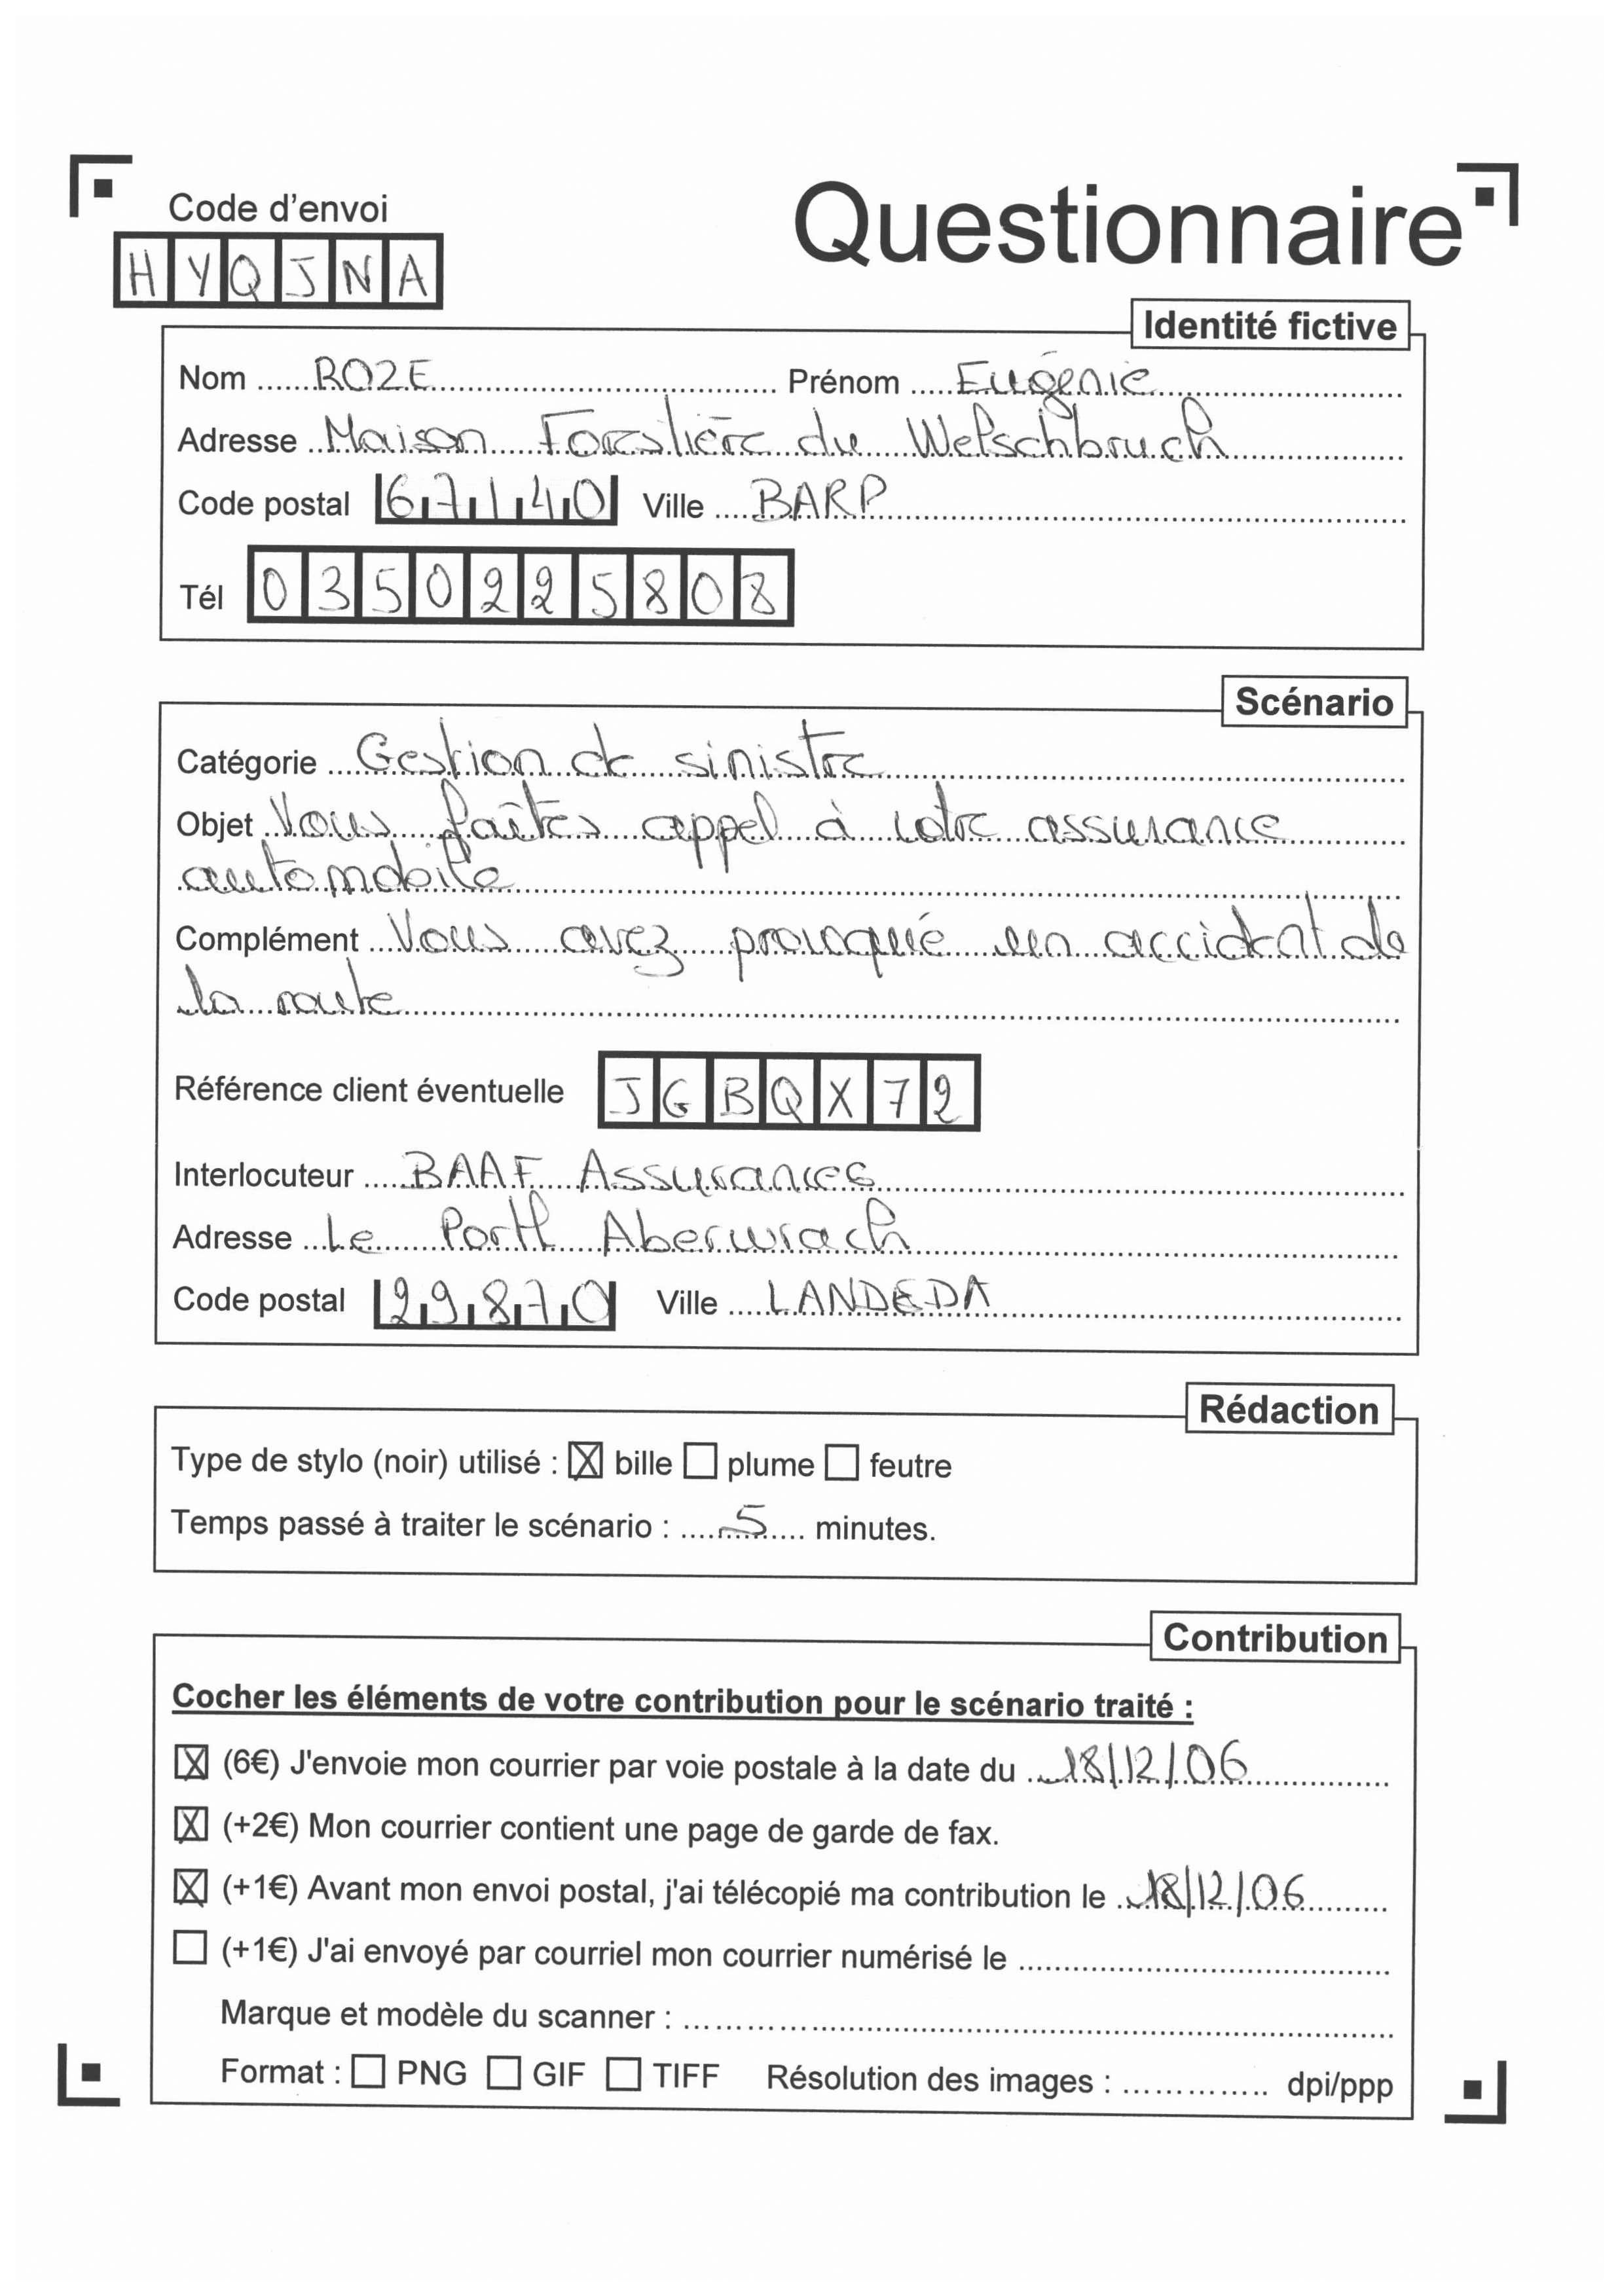 Code d'envoi
HYQJNA
Questionnaire
Identité fictive
Nom ROZE Prénom Eugénie
Adresse Maison Forestière du Welschbruch
Code postal 67140 Ville BARP
Tél 0350225808
Scénario
Catégorie Gestion de sinistre
Objet Vous faîtes appel à votre assurance
automobile
Complément Vous avez provoqué un accident de
la route
Référence client éventuelle JGBQX72
Interlocuteur BAAF Assurances
Adresse Le Portl Aberwrach
Code postal 29870 Ville LANDEDA
Rédaction
Type de stylo (noir) utilisé : ☒ bille ☐ plume ☐ feutre
Temps passé à traiter le scénario : 5 minutes.
Contribution
Cocher les éléments de votre contribution pour le scénario traité :
☒ (6€) J'envoie mon courrier par voie postale à la date du 18/12/06
☒ (+2€) Mon courrier contient une page de garde de fax.
☒ (+1€) Avant mon envoi postal, j'ai télécopié ma contribution le 18/12/06
☐ (+1€) J'ai envoyé par courriel mon courrier numérisé le
Marque et modèle du scanner :
Format : ☐ PNG ☐ GIF ☐ TIFF Résolution des images : dpi/ppp